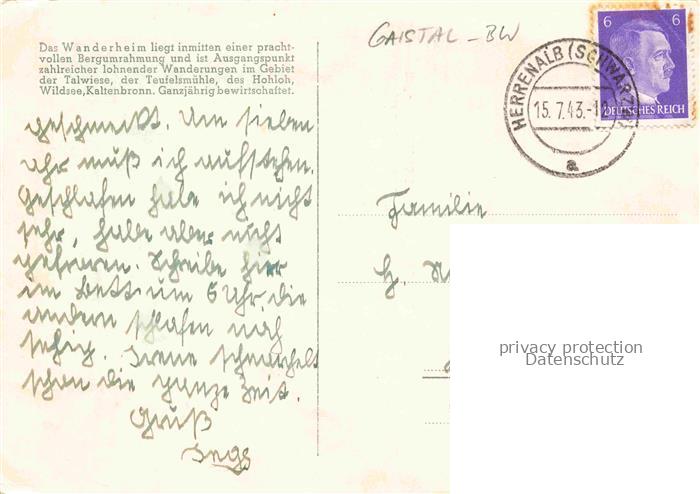 GAISTAL - BW
6 6
HERRENALB (SCHWARZW
15.7.43.-1
a
DEUTSCHES REICH
Das Wanderheim liegt inmitten einer pracht-
vollen Bergumrahmung und ist Ausgangspunkt
zahlreicher lohnender Wanderungen im Gebiet
der Talwiese, der Teufelsmühle, des Hohloh,
Wildsee, Kaltenbronn. Ganzjährig bewirtschaftet.
geschmeckt. Um sieben
Uhr muß ich aufstehen.
Geschlafen habe ich nicht
sehr, habe aber nicht
gefroren. Schreibe hier
im Bett um 6 Uhr die
andern schlafen noch
selig. Irene schnarchelt
schon die ganze Zeit.
Gruß
Familie
H.
privacy protection
Datenschutz